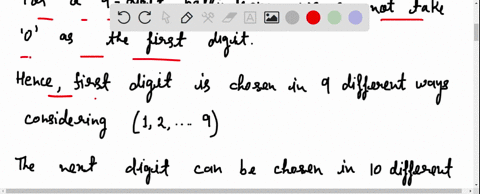 For a 9-digit not take
'0' as the first digit.
Hence, first digit is chosen in 9 different ways
considering (1, 2, ... 9)
The next digit can be chosen in 10 different